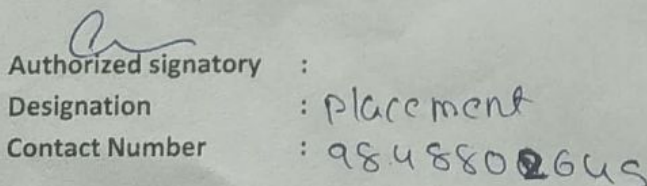 Authorized signatory :
Designation : Placement
Contact Number :